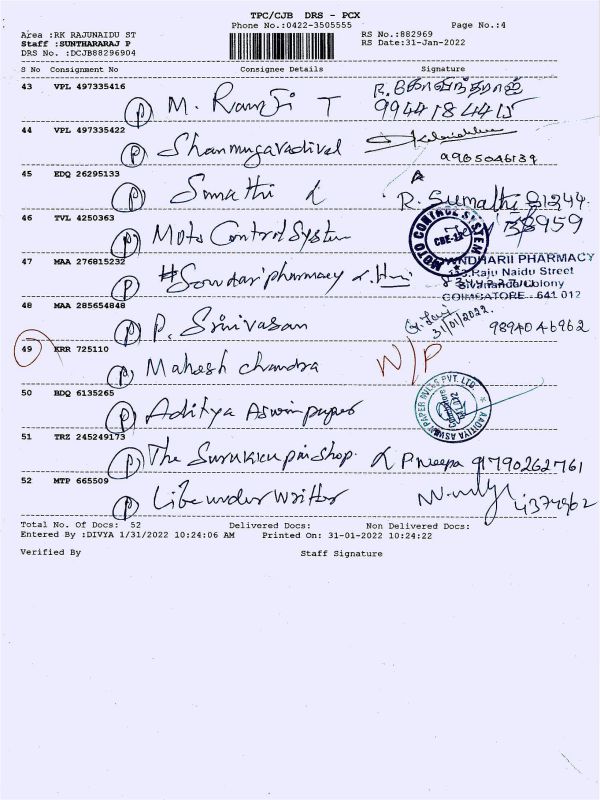 TPC/CJB DRS - PCX
Phone No.:0422-3505555 Page No.:4
Area :RK RAJUNAIDU ST RS No.:882969
Staff :SUNTHARARAJ P RS Date:31-Jan-2022
DRS No. :DCJB88296904
S No Consignment No Consignee Details Signature
43 VPL 497335416
P M. Ramji T 9944184415
44 VPL 497335422
P Shanmugavadivel 9965046139
45 EDQ 26295133
P Sumathi R. Sumathi
46 TVL 4250363
P Moto Control System MOTO CONTROL SYSTEM CBE-12
47 MAA 276815232
P Soundari pharmacy
PHARMACY
Raju Naidu Street
Sivananda Colony
COIMBATORE - 641 012
48 MAA 285654848
P P. Srinivasan 31/01/2022. 9894046962
49 KRR 725110
P Mahesh chandra N/P
50 BDQ 6135265
P Aditya Aswin paper AADITYA ASWIN PAPER MILLS PVT. LTD.
51 TRZ 245249173
P The Surukkupai shop. 91790262761
52 MTP 665509
P
Total No. Of Docs: 52 Delivered Docs: Non Delivered Docs:
Entered By :DIVYA 1/31/2022 10:24:06 AM Printed On: 31-01-2022 10:24:22
Verified By Staff Signature